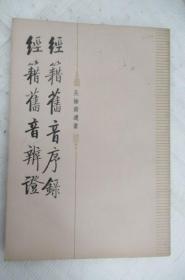 經籍舊音序錄
經籍舊音辨證
吳檢齋遺書